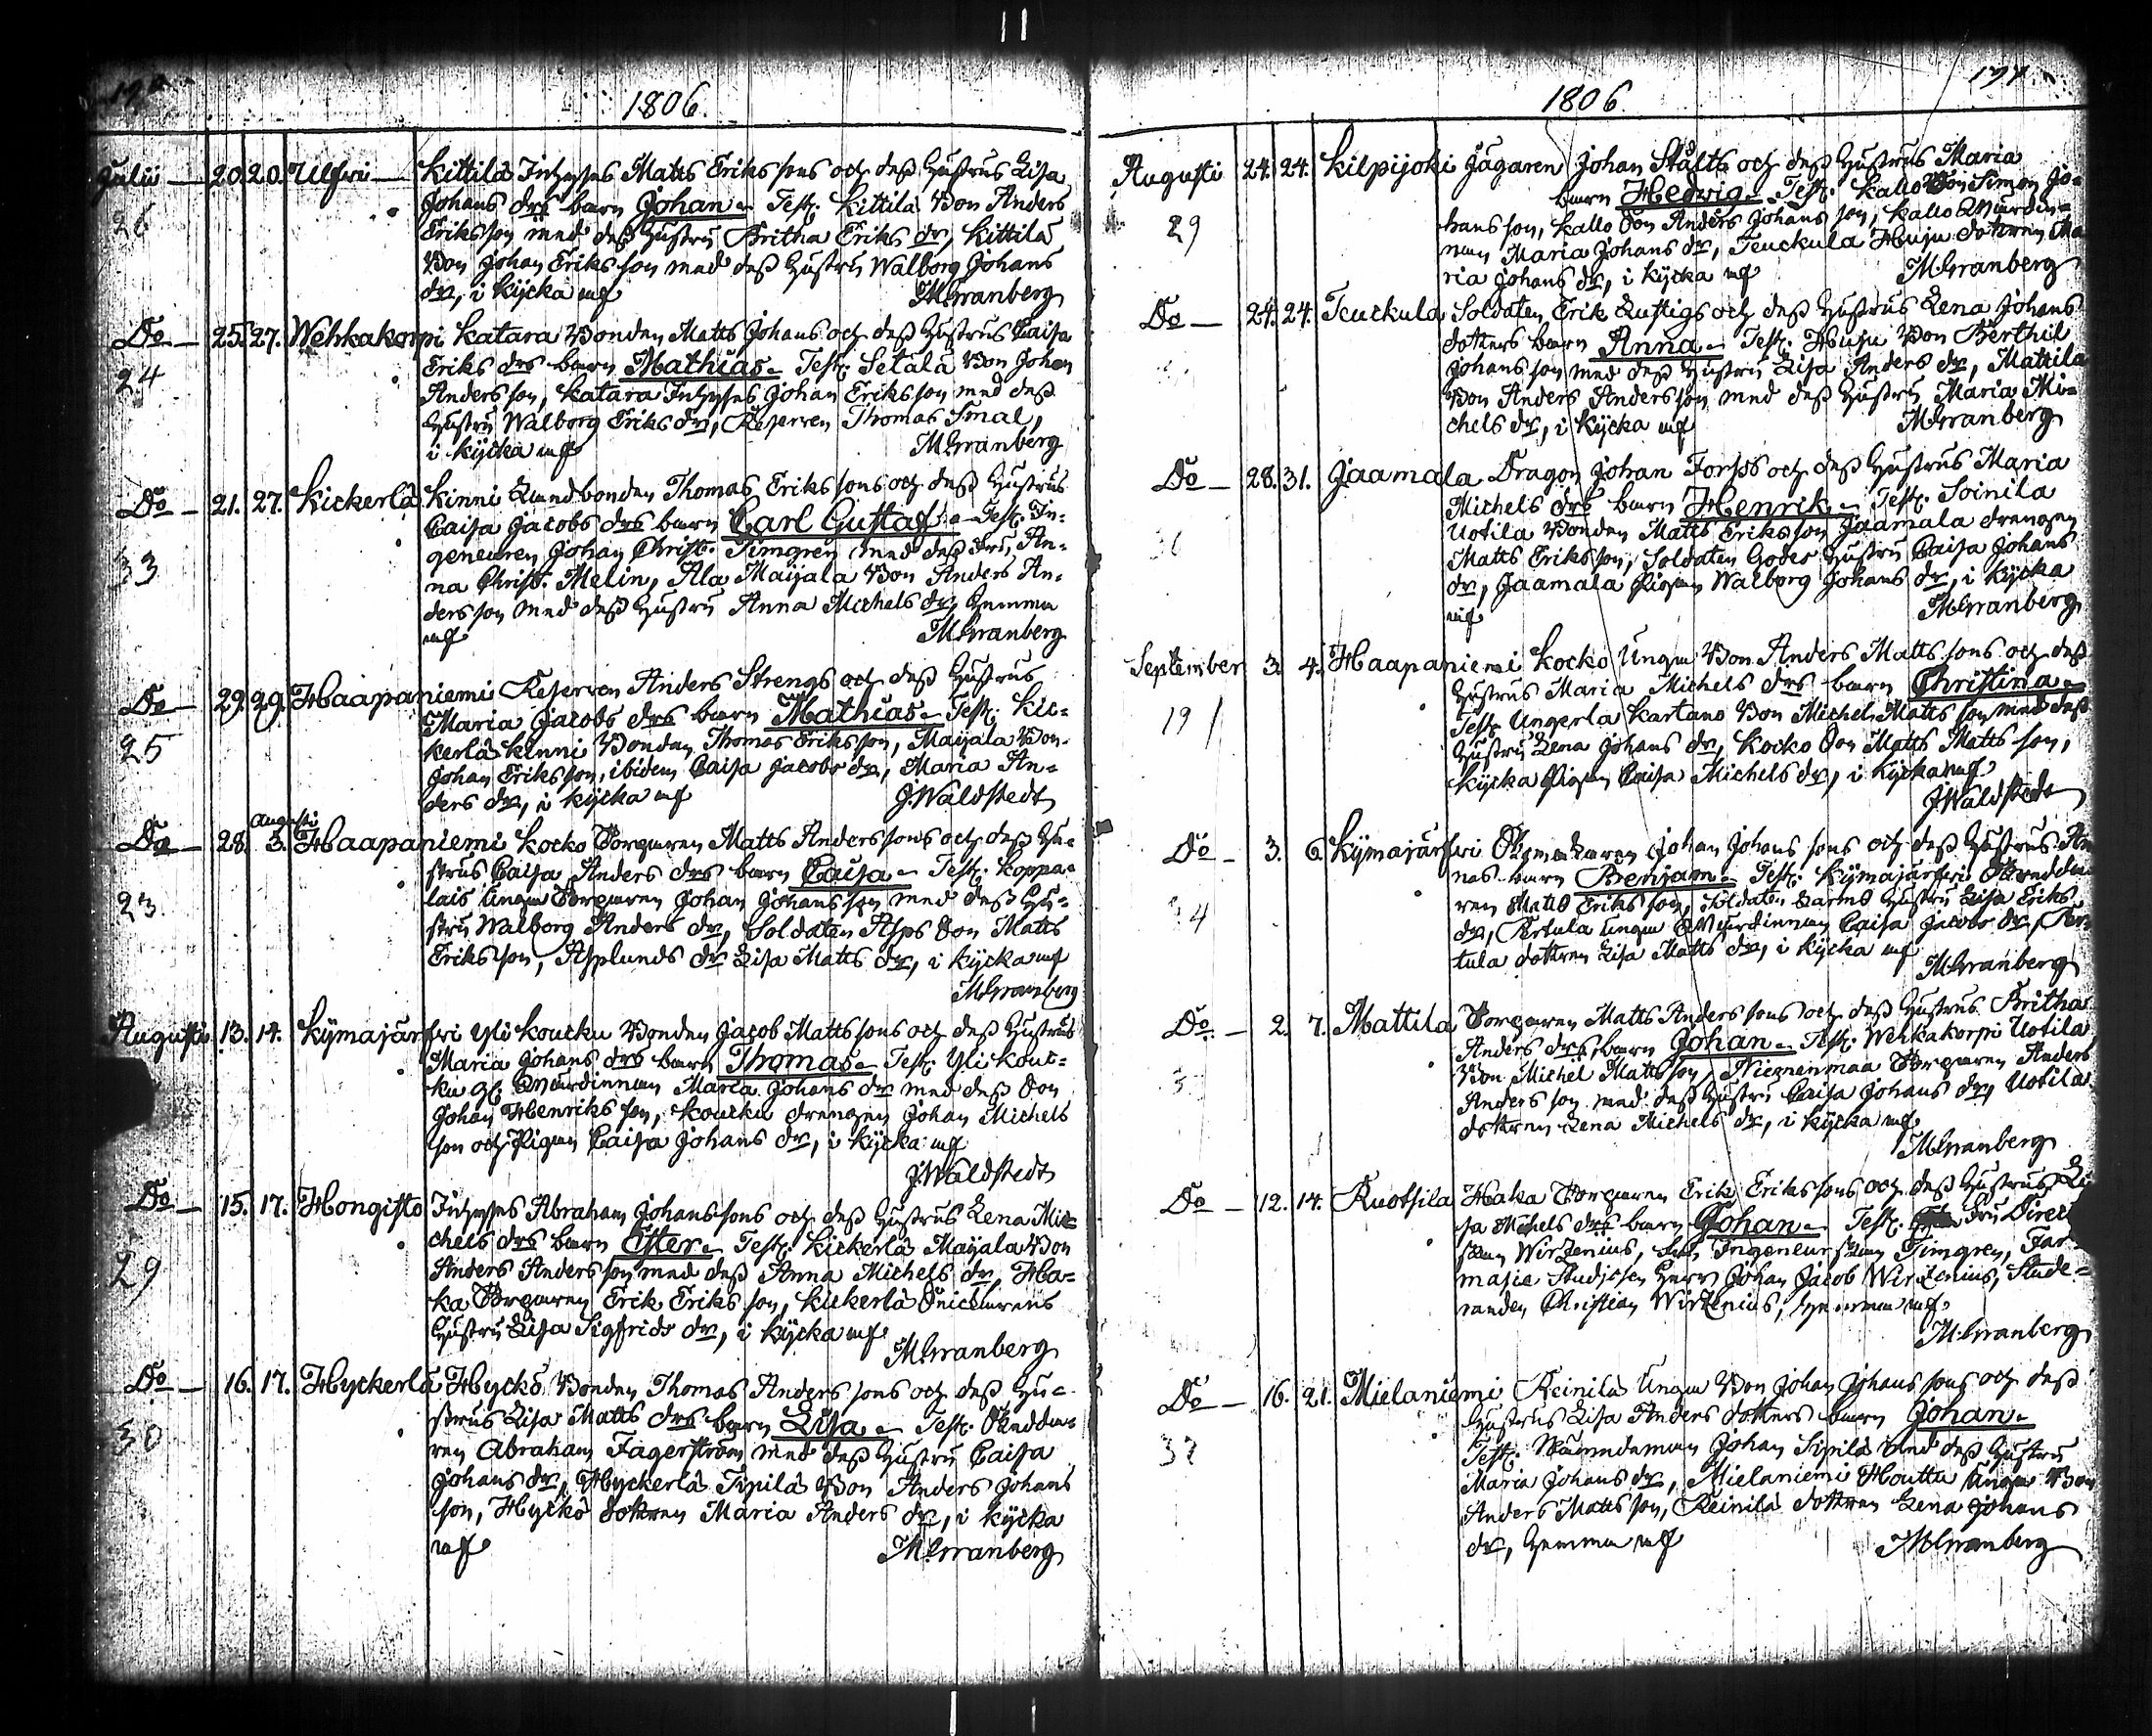 1806.
Julii — 20. 20. Ulfwi — Kittilä Inhyses Matts Erikssons och dess Hustrus Lisa
26 Johans drs barn Johan - Test: Kittilä Bon Anders
Eriksson med dess Hustru Britha Eriks dr, Kittilä
Bon Johan Eriksson med dess Hustru Walborg Johans
dr, i Kÿcka mf M.Granberg
Do — 25. 27. Wehkakorpi Katara Bonden Matts Johans och dess Hustrus Caisa
24 Eriks drs barn Mathias - Test: Setälä Bon Johan
Andersson, Katara Inhyses Johan Eriksson med dess
Hustru Walborg Eriks dr, Reserven Thomas Smal,
i Kÿcka mf M.Granberg
Do — 21. 27. Kickerlä Kinni Landbonden Thomas Erikssons och dess Hustrus
Caisa Jacobs drs barn Carl Gustaf - Test: In-
33 geneuren Johan Christ. Timgren med dess fru An-
na Christ. Melin, Ala Maijala Bon Anders An-
dersson med dess Hustru Anna Michels dr, hemma
mf M.Granberg
Do — 29. 29. Haapaniemi Reserven Anders Strengs och dess Hustrus
Maria Jacobs drs barn Mathias - Test: Kic-
25 kerlä Kinni Bonden Thomas Eriksson, Maijala Bon
Johan Eriksson, ibidem Caisa Jacobs dr, Maria An-
ders dr, i Kÿcka mf J.Waldstedt
Augusti
Do — 28. 3. Haapaniemi Kocko Torparen Matts Anderssons och dess Hu-
strus Caisa Anders drs barn Caisa - Test: Koppa-
23 lais unga Torparen Johan Johansson med dess Hu-
stru Walborg Anders dr, Soldaten Asps Son Matts
Eriksson, Asplunds dr Lisa Matts dr, i Kÿcka mf
M.Granberg
Augusti 13. 14. Kÿmajärfwi Yli Koucku Bonden Jacob Mattssons och dess Hustrus
Maria Johans drs barn Thomas - Test: Yli Kouc-
ku gl. Wärdinnan Maria Johans dr med dess Son
Johan Henriksson, Koucku drengen Johan Michels
son och Pigan Caisa Johans dr, i Kÿcka mf
J.Waldstedt
Do — 15. 17. Hongisto Inhyses Abraham Johanssons och dess Hustrus Lena Mi-
chels drs barn Ester - Test: Kickerlä Maijala Bon
29 Anders Andersson med dess Anna Michels dr, Ha-
ka Torparen Erik Eriksson, Kickerlä Snickarens
Hustru Lisa Sigfrids dr, i Kÿcka mf
M.Granberg
Do — 16. 17. Hyckerlä Hyckö Bonden Thomas Anderssons och dess Hu-
strus Lisa Matts drs barn Lisa - Test: Skredda-
30 ren Abraham Fagerström med dess Hustru Caisa
Johans dr, Hyckerlä Sipilä Bon Anders Johans
son, Hyckö dottren Maria Anders dr, i Kÿcka
mf M.Granberg
1806.
Augusti 24. 24. Kilpijoki Jägaren Johan Stålts och dess Hustrus Maria
barn Hedvig - Test: Kallo Bon Simon Jo-
29 hansson, Kallo Son Anders Johansson, Kallo Wärdin-
nan Maria Johans dr, Teuckula Huju dottren Ma
ria Johans dr, i Kÿcka mf M.Granberg
Do — 24. 24. Teuckula Soldaten Erik Lustigs och dess Hustrus Lena Johans
dotters barn Anna - Test: Huju Bon Berthil
Johansson med dess Hustru Lisa Anders dr, Mattila
Bon Anders Andersson med dess Hustru Maria Mi-
chels dr, i Kÿcka mf M.Granberg
Do — 28. 31. Jaamala Dragon Johan Forsss och dess Hustrus Maria
Michels drs barn Henrik - Test: Soinila
Uotila Bonden Matts Eriksson Jaamala drengen
Matts Eriksson, Soldaten Hustru Caisa Johans
dr, Jaamala Pigan Walborg Johans dr, i Kÿcka
mf M.Granberg
September 3. 4. Haapaniemi Kocko Unga Bon Anders Mattssons och dess
Hustrus Maria Michels drs barn Christina -
19 Test: Ungerla Kartano Bon Michel Mattsson med dess
Hustru Lena Johans dr, Kocko Son Matts Mattsson,
Kÿcka Pigan Caisa Michels dr, i Kÿcka mf
J.Waldstedt
Do — 3. 6. Kÿmajärfwi Johan Johanssons och dess Hustrus An
nas barn Benjam - Test: Kÿmajärfwi Skredda
34 ren Matts Eriksson, Soldaten Hustru Lisa Eriks
dr, Pertula unga Wärdinnan Caisa Jacobs dr, Per
tula dottren Lisa Matts dr, i Kÿcka mf
M.Granberg
Do — 2. 7. Mattila Torparen Matts Anderssons och dess Hustrus Britha
Anders drs barn Johan - Test: Wehkakorpi Uotila
Bon Michel Mattsson, Niemenmaa Torparen Anders
Andersson med dess Hustru Caisa Johans dr, Uotila
dottren Lena Michels dr, i Kÿcka mf
M.Granberg
Do — 12. 14. Ruotsila Haka Torparen Erik Erikssons och dess Hustrus Li
sa Michels drs barn Johan - Test: fru
Wirzenius, Ingeneurskan Timgren, Far-
macia Studiosen Herr Johan Jacob Wirzenius, Stude-
randen Christian Wirzenius, hemma mf
M.Granberg
Do — 16. 21. Mielaniemi Reinilä Unga Bon Johan Johanssons och dess
Hustrus Lisa Anders dotters barn Johan -
37 Test: Nämndeman Johan Sipilä med dess Hustru
Maria Johans dr, Mielaniemi Houttu Unga Bon
Anders Mattsson, Reinilä dottren Lena Johans
dr, hemma mf M.Granberg